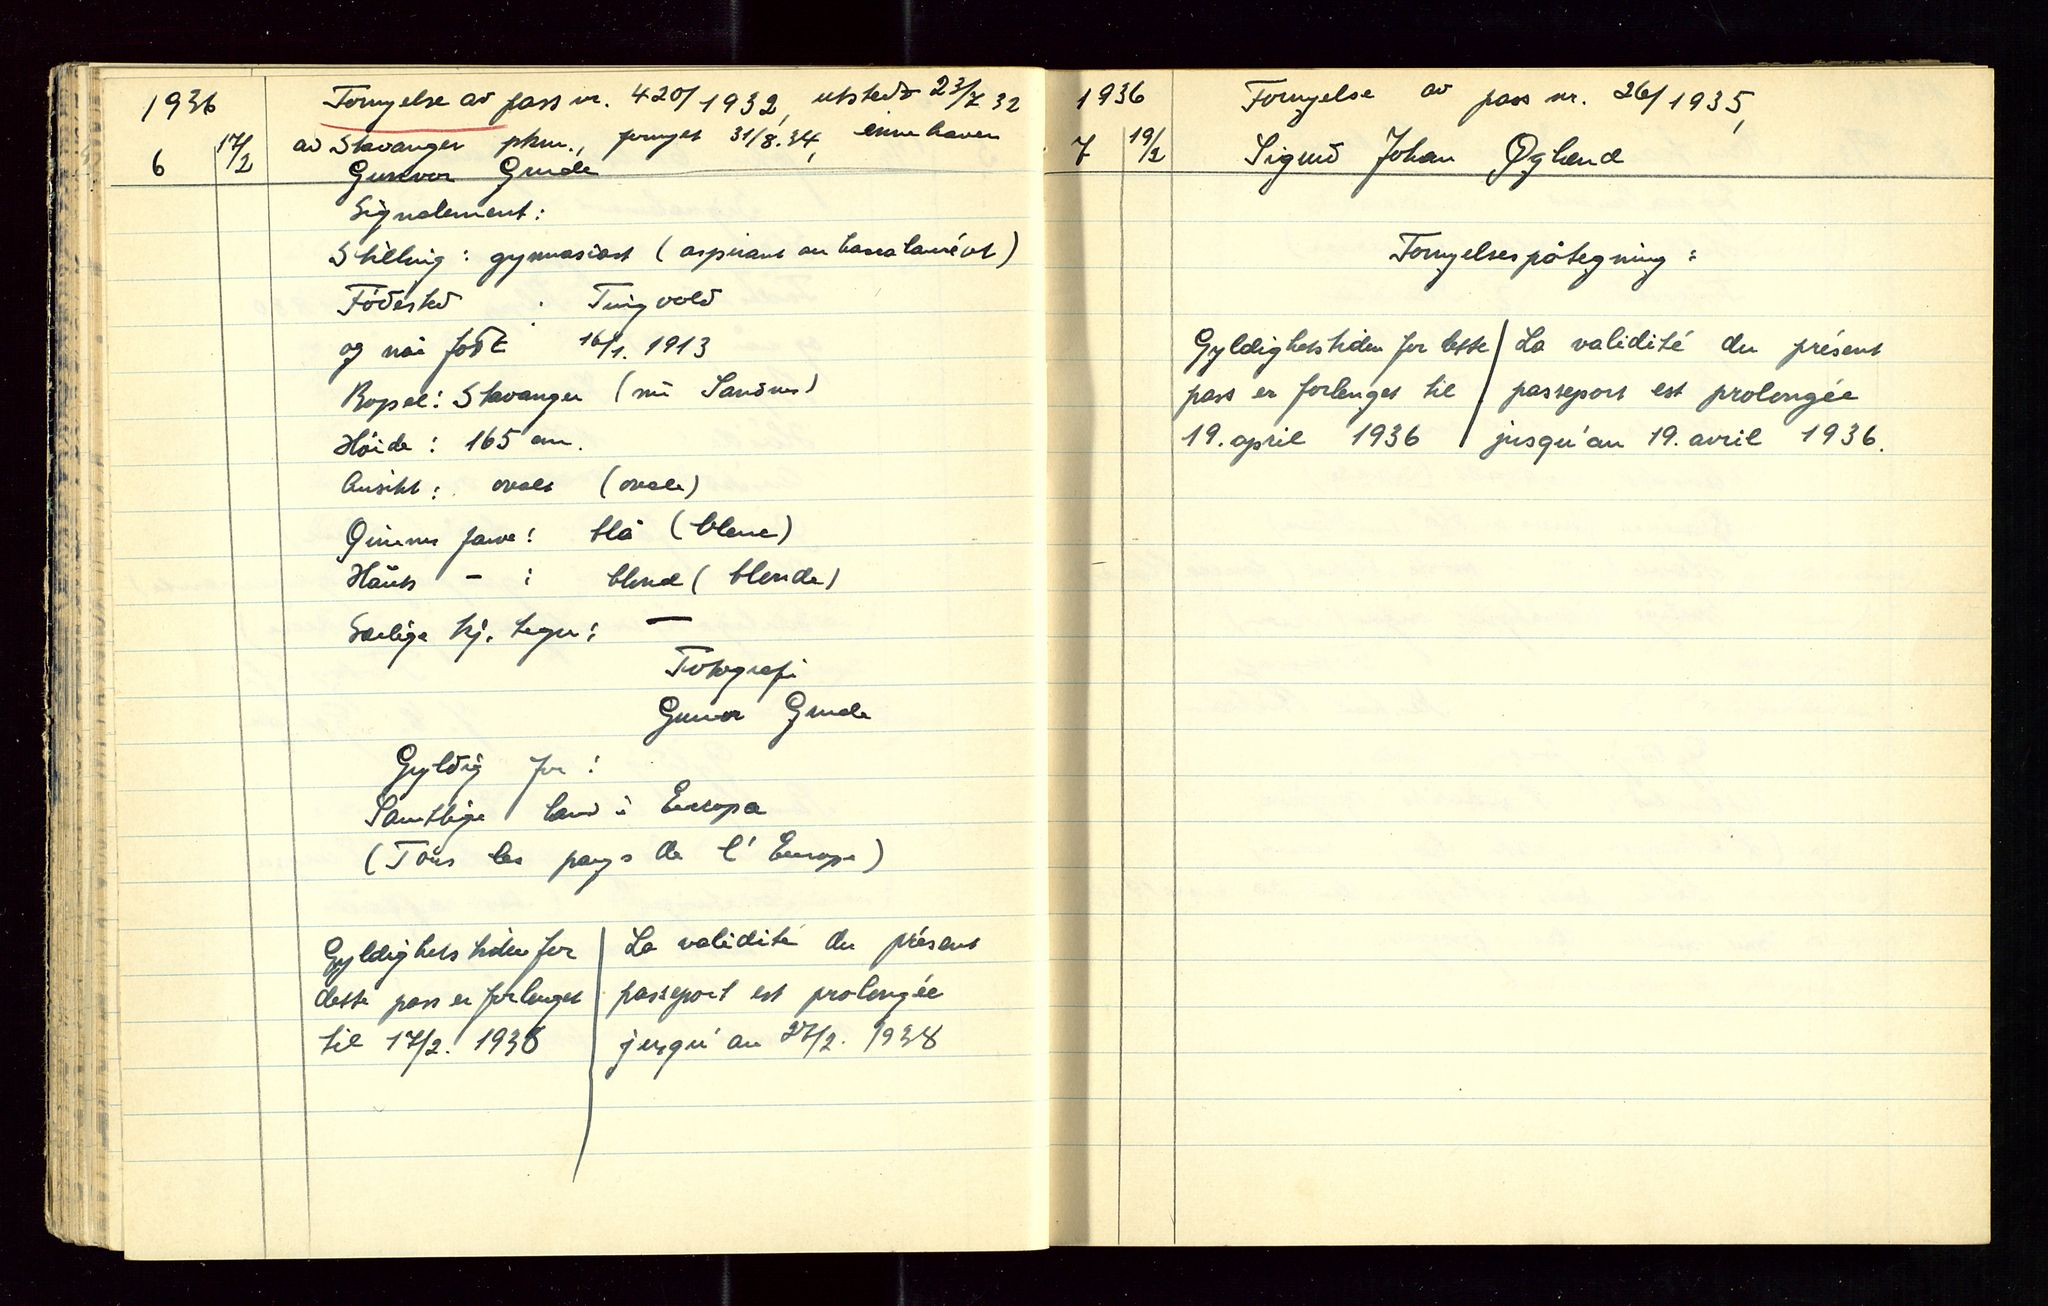 1936
6 17/2
Fornyelse av pass nr. 420/1932, utstedt 23/7 32
av Stavanger pkm., fornyet 31/8.34, innehaver
Gunvor Grude
Signalement:
Stilling: gymnasiast (aspirant au baccalauréat)
Födested : Tingvold
og når födt 16/1. 1913
Bopæl: Stavanger (nu Sandnes)
Höide: 165 cm.
Ansikt: ovalt (ovale)
Öinenes farve: blå (bleue)
Hårets - : blond (blonde)
Særlige kj. tegn: —
Fotografi
Gunvor Grude
Gyldig for:
Samtlige land i Europa
(Tous les pays de l'Europe)
Gyldighetstiden for
dette pass er forlenget
til 17/2. 1938
La validité du présent
passeport est prolongée
jusqu'au 27/2. 1938
1936
7 19/2
Fornyelse av pass nr. 26/1935,
Sigurd Johan Øglænd
Fornyelsespåtegning:
Gyldighetstiden for dette
pass er forlenget til
19. april 1936
La validité du présent
passeport est prolongée
jusqu'au 19. avril 1936.